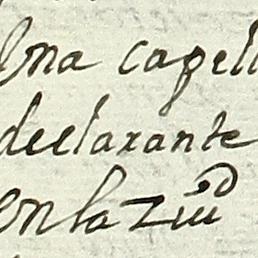 Una capell
declarante
en la Ziud